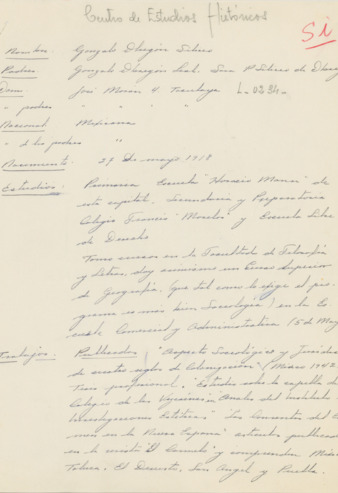 Centro de Estudios Históricos
Si
Nombre: Gonzalo Obregón
Padres Gonzalo Obregón
Dom José Morán L-0234-
" padres " "
Nacional Mexicana
" de los padres "
Nacimiento. 29 de mayo 1918
Estudios: Primaria Escuela "Horacio Mann" de
esta capital. Secundaria y Preparatoria
Colegio Francés Morelos y Escuela Libre
de Derecho
Tomo cursos en la Facultad de Filosofía
y Letras, doy asimismo un Curso Superior
de Geografía. Que tal como lo exige el pro-
grama es más bien Sociología) en la Es-
cuela Comercial y Administrativa
Trabajos. Publicados "Aspecto Sociológico y Jurídico
de nuestros siglos de (México 1942
Tesis profesional. "Estudio sobre la capilla del
Colegio de las Vizcaínas Anales del Instituto de
Investigaciones Estéticas" Los Conventos del
en la Nueva España" artículos publicados
en la revista "El Carmelo" y comprenden
Toluca. El Desierto, San Angel y Puebla.